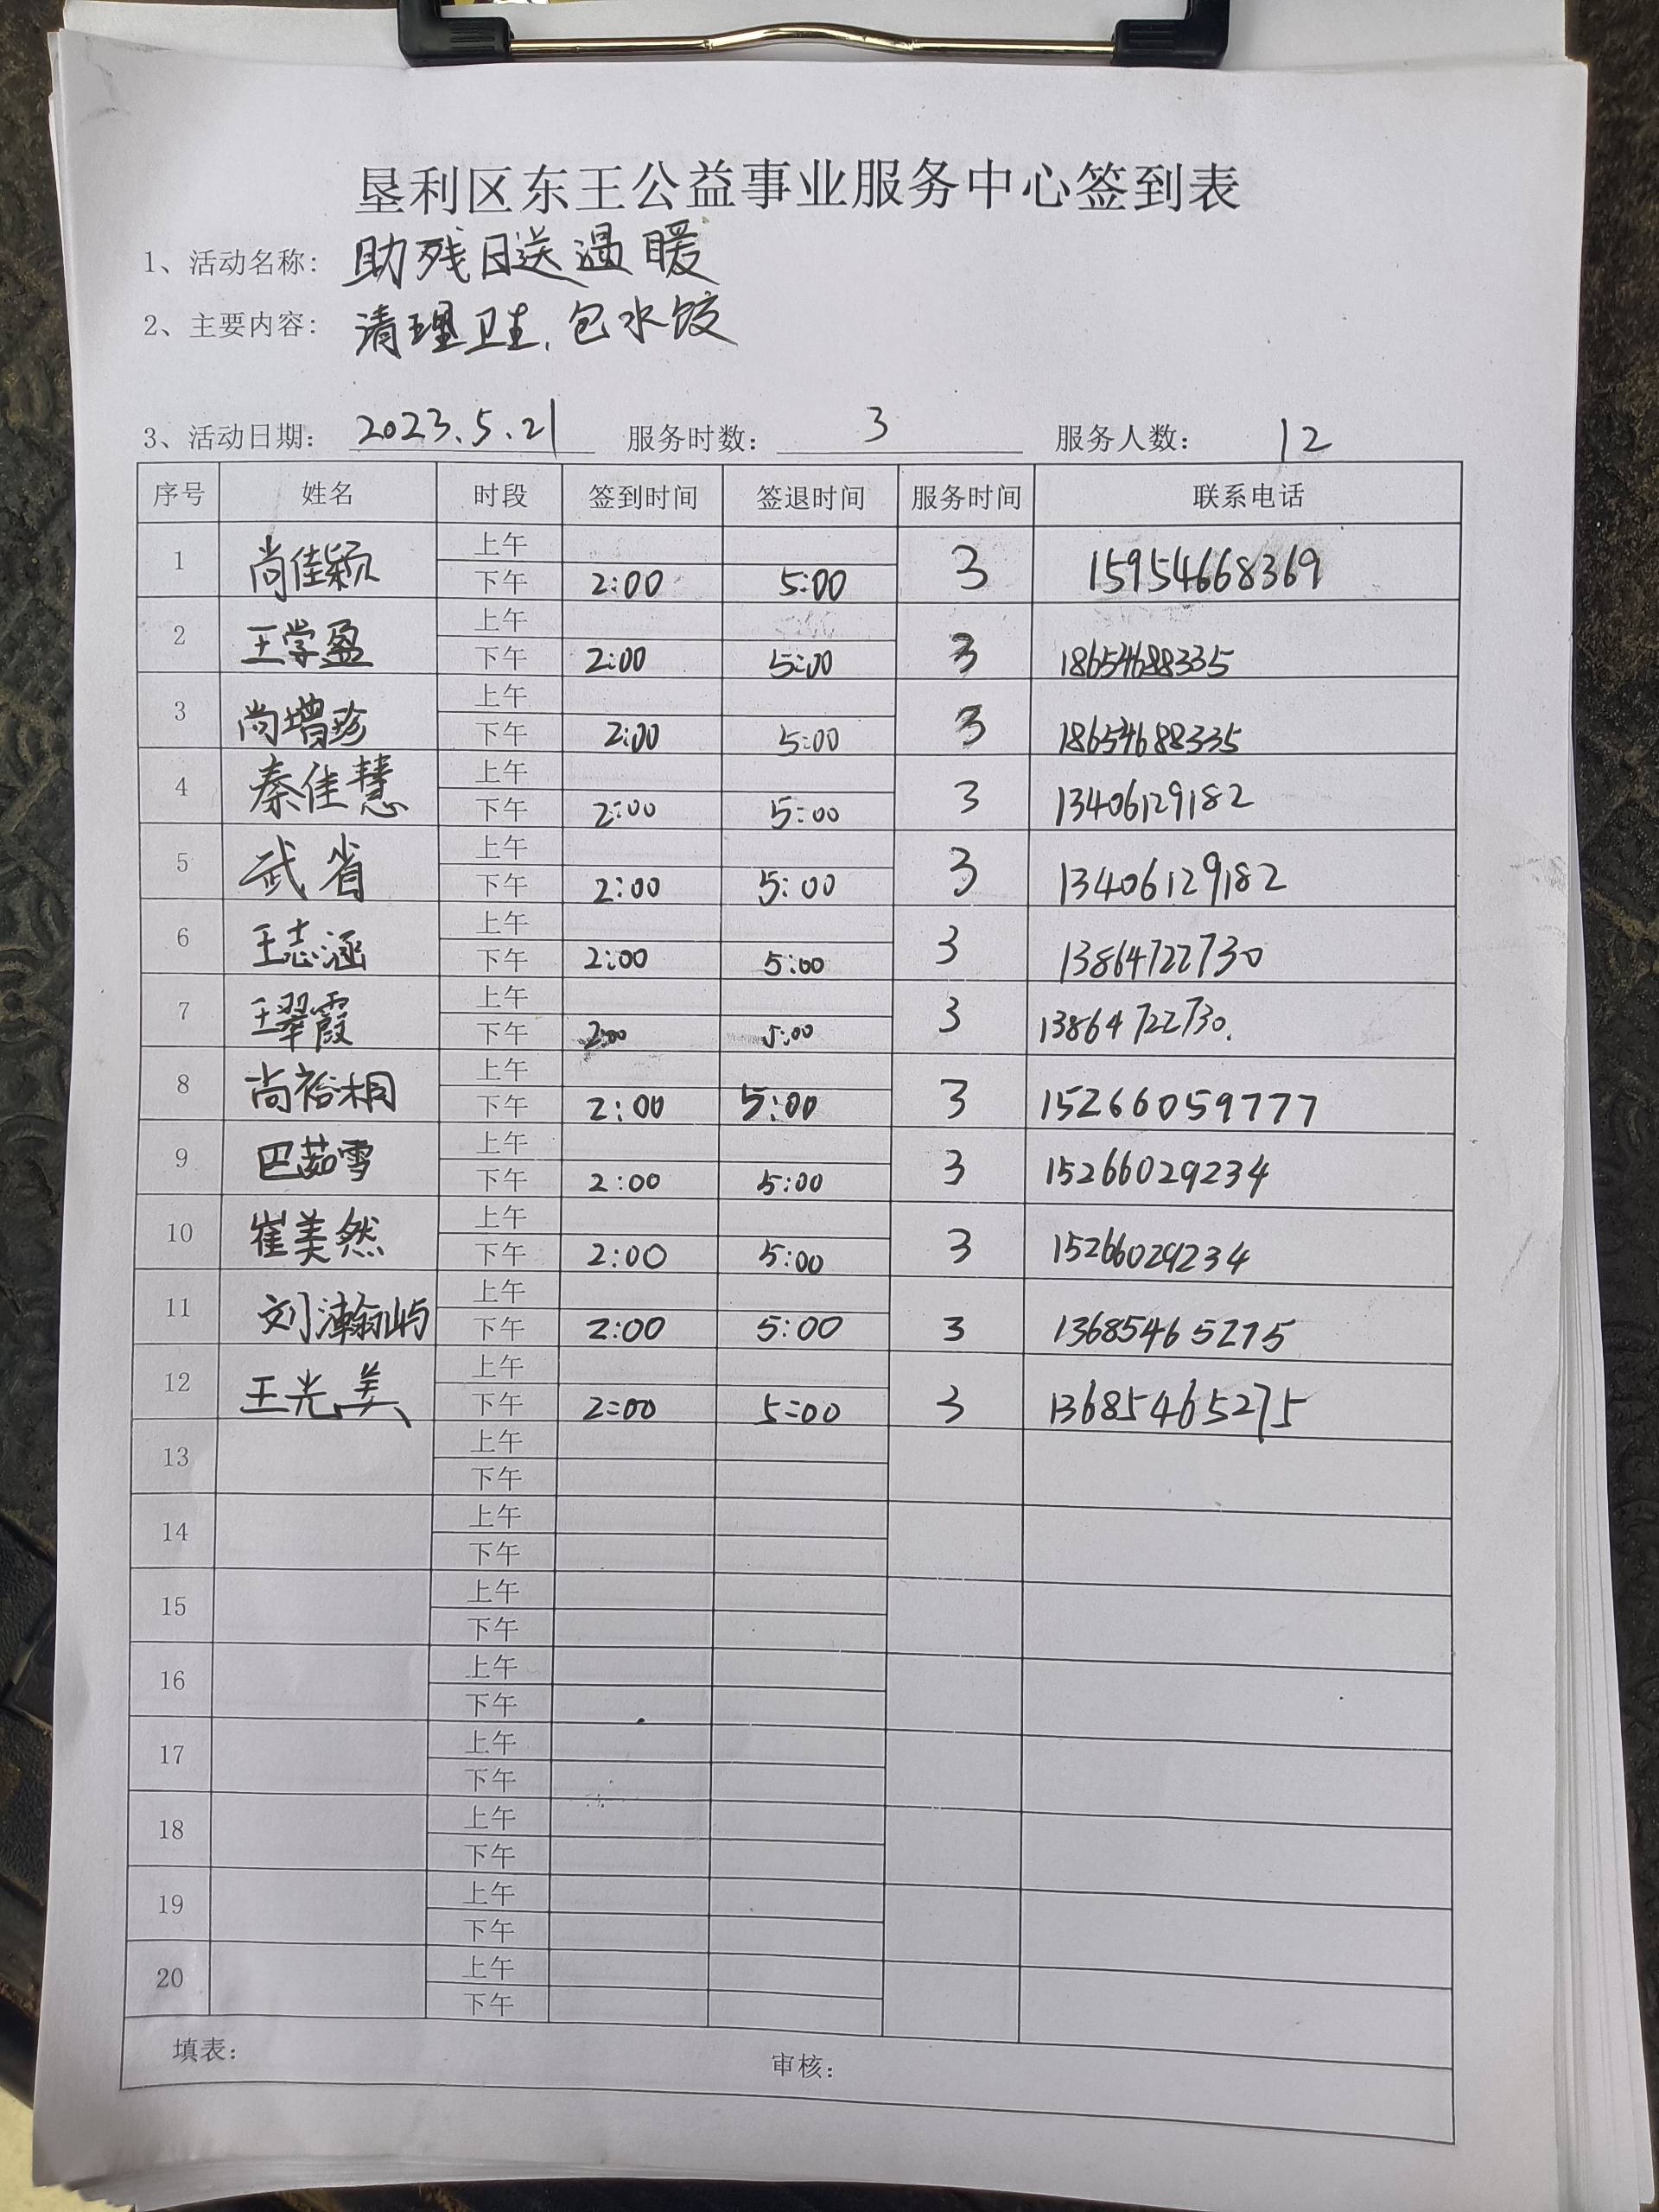 垦利区东王公益事业服务中心签到表
1、活动名称: 助残日送温暖
2、主要内容: 清理卫生、包水饺
3、活动日期: 2023.5.21 服务时数: 3 服务人数: 12
序号 姓名 时段 签到时间 签退时间 服务时间 联系电话
上午
1 尚佳颖 3 15954668369
下午 2:00 5:00
上午
2 王学盈 3 18654688335
下午 2:00 5:00
上午
3 尚增珍 3 18654688335
下午 2:00 5:00
上午
4 秦佳慧 3 13406129182
下午 2:00 5:00
上午
5 武省 3 13406129182
下午 2:00 5:00
上午
6 王志涵 3 13864722730
下午 2:00 5:00
上午
7 王翠霞 3 13864722730.
下午 2:00 5:00
上午
8 尚裕桐 3 15266059777
下午 2:00 5:00
上午
9 巴茹雪 3 15266029234
下午 2:00 5:00
上午
10 崔美然 3 15266029234
下午 2:00 5:00
上午
11 刘瀚屿 3 13685465275
下午 2:00 5:00
上午
12 王光美 3 13685465275
下午 2:00 5:00
上午
13
下午
上午
14
下午
上午
15
下午
上午
16
下午
上午
17
下午
上午
18
下午
上午
19
下午
上午
20
下午
填表: 审核: